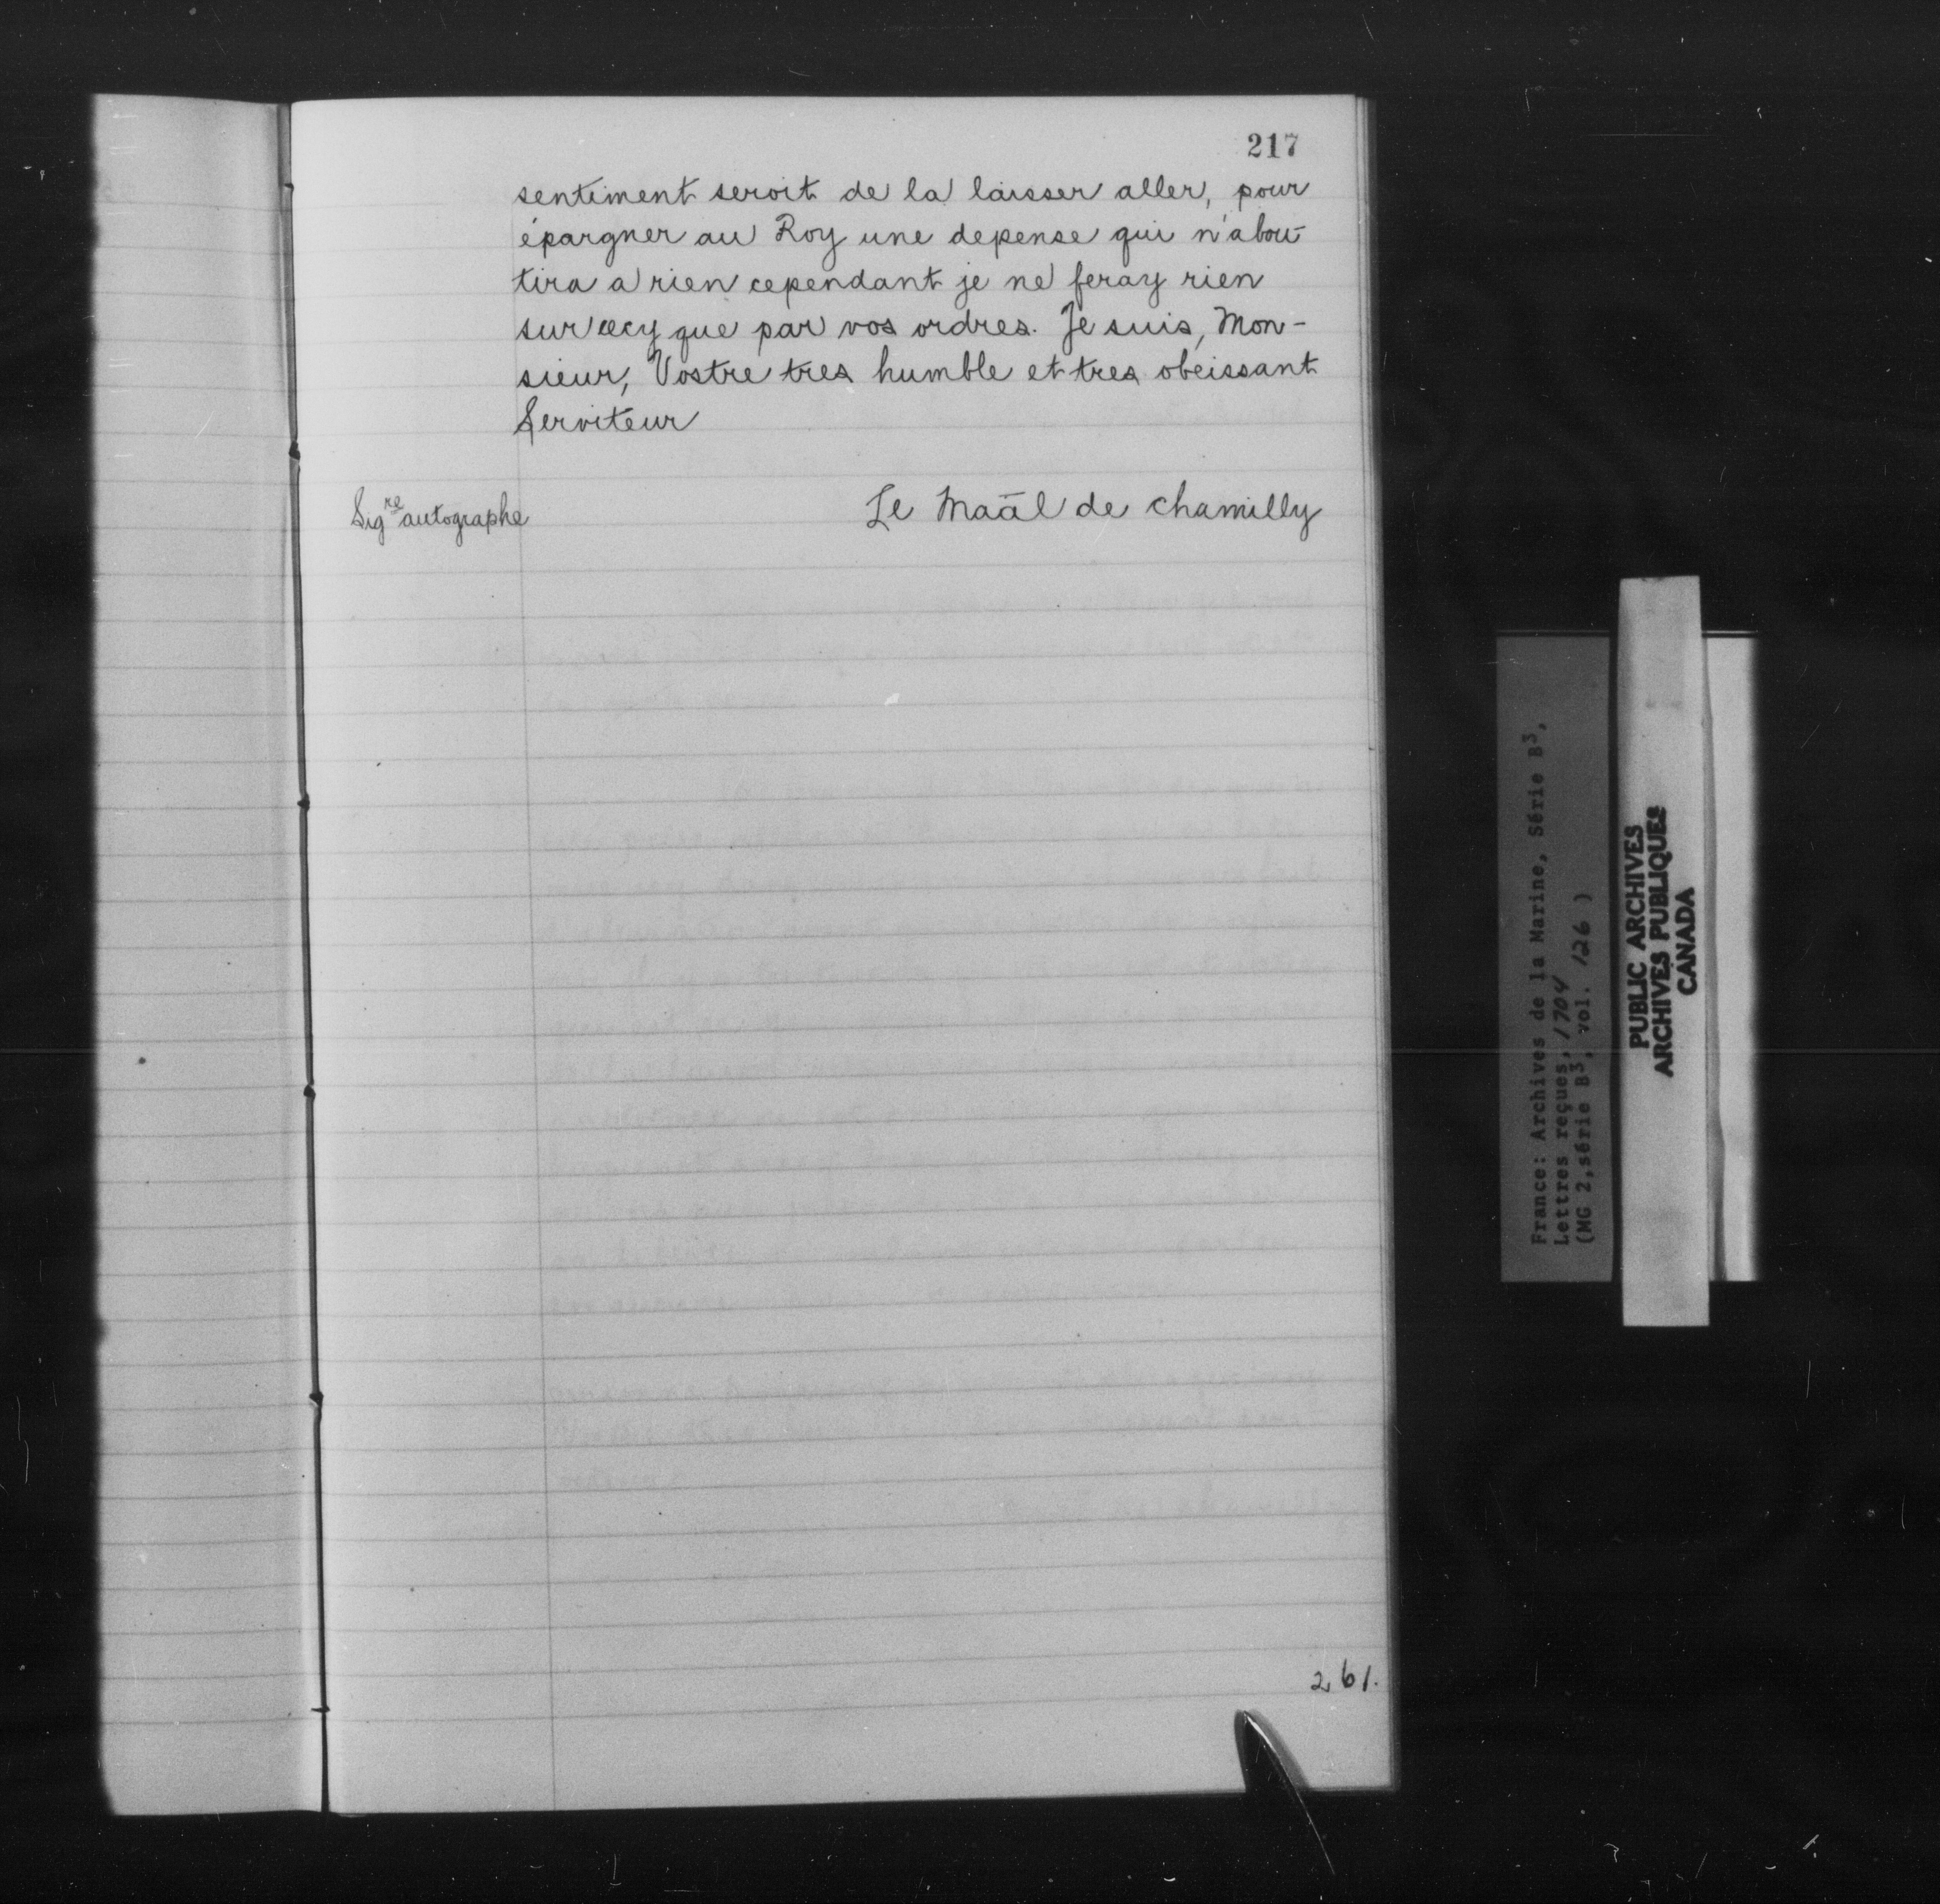 217
sentiment seroit de la laisser aller, pour
épargner au Roy une depense qui n'abou-
tira a rien cependant je ne feray rien
sur cecy que par vos ordres. Je suis, Mon-
sieur, Vostre tres humble et tres obeissant
Serviteur
Sigre autographe
Le Maāl de chamilly
261.
France: Archives de la Marine, Série B3,
Lettres reçues, 1704
(MG 2, série B3, vol. 126 )
PUBLIC ARCHIVES
ARCHIVES PUBLIQUES
CANADA